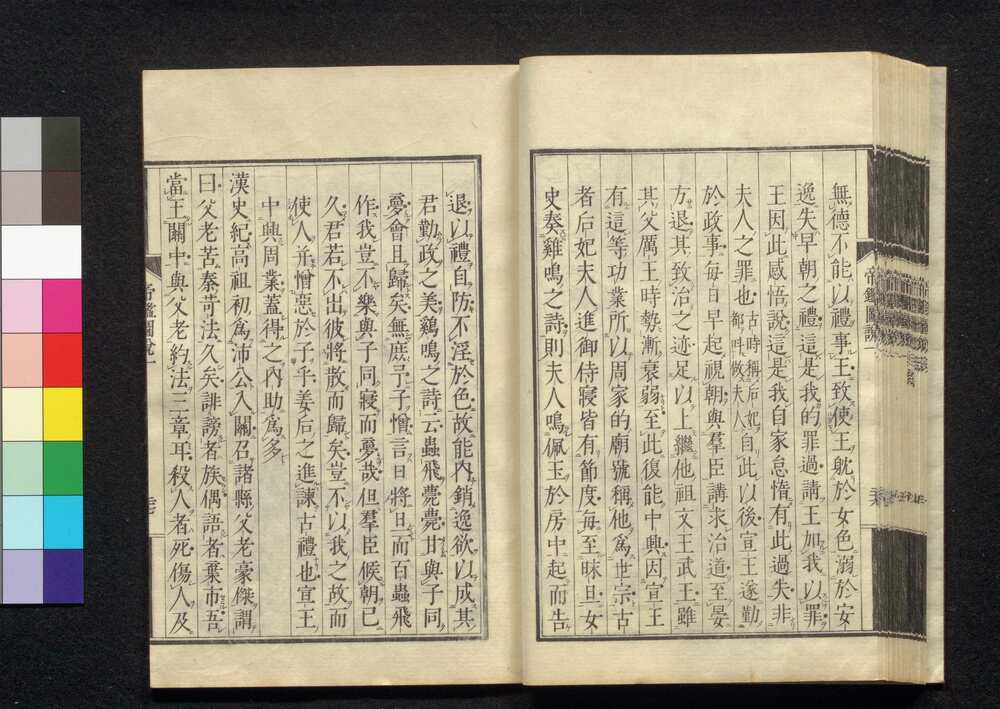 無德不能以禮事王致使王躭於女色溺於安
逸失早朝之禮這是我的罪過請王加我以罪
王因此感悟說這是我自家怠惰有此過失非
夫人之罪也古時稱后妃都呼做夫人自此以後宣王遂勤
於政事每日早起視朝與羣臣講求治道至晏
方退其致治之迹足以上繼他祖文王武王雖
其父厲王時勢漸衰弱至此復能中興因宣王
有這等功業所以周家的廟號稱他爲世宗古
者后妃夫人進御侍寢皆有節度每至昧旦女
史奏雞鳴之詩則夫人鳴佩玉於房中起而告
帝鑑圖說
退以禮自防不淫於色故能內銷逸欲以成其
君勤政之美鷄鳴之詩云蟲飛薨薨甘與子同
夢會且歸矣無庶予子憎言日將旦而百蟲飛
作我豈不樂與子同寢而夢哉但羣臣候朝已
久君若不出彼將散而歸矣豈不以我之故而
使人并憎惡於子乎姜后之進諫古禮也宣王
中興周業蓋得之內助爲多
漢史紀高祖初爲沛公入關召諸縣父老豪傑謂
曰父老苦秦苛法久矣誹謗者族偶語者棄市吾
當王關中與父老約法三章耳殺人者死傷人及
帝鑑圖說一